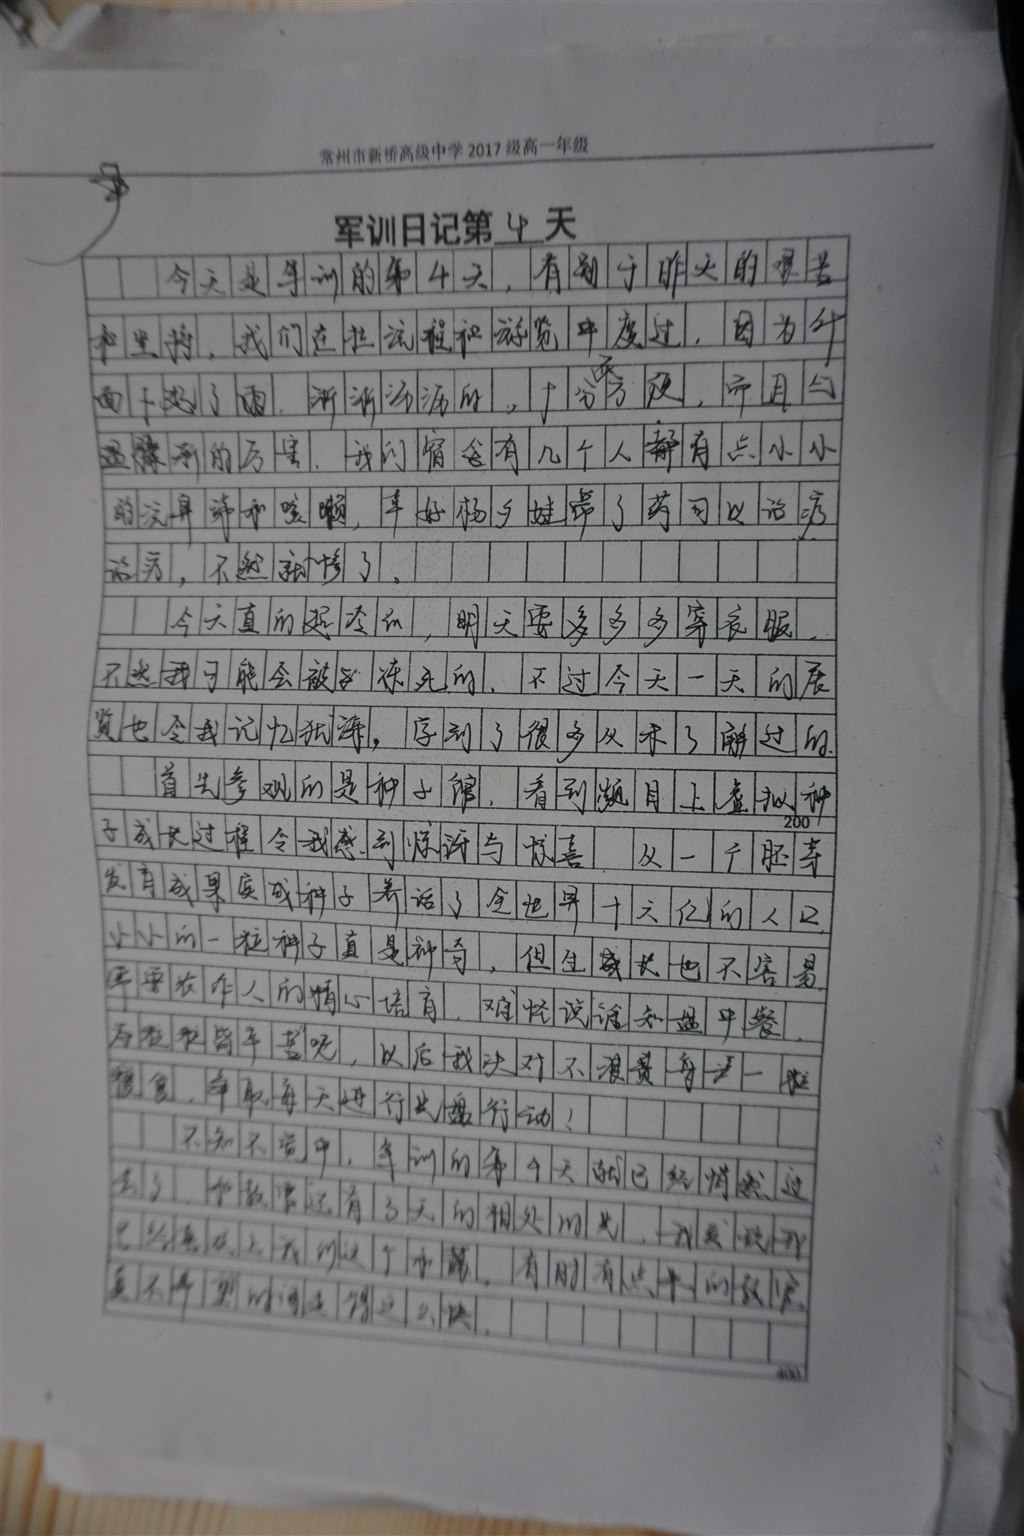 常州市新桥高级中学 2017 级高一年级
军训日记第4天
今天是军训的第4天，有别于昨天的艰苦
和坚持，我们在拉流程和游览中度过，因为外
面下起了雨，淅淅沥沥的，十分方夜，而且
的厉害，我们宿舍有几个人都有点小小
的流鼻涕和咳嗽，幸好杨乡娃带了药可以治疗
治疗，不然就惨了。
今天真的超冷的，明天要多多多穿衣服，
不然我可能会被冻死的，不过今天一天的展
览也令我记忆犹深，学到了很多从未了解过的
首先参观的是种子馆，看到频目上虚拟种
200
子成长过程令我感到惊讶与惊喜 从一个胚芽
发育成果实或种子养活了全世界十天亿的人口
小小的一粒种子真是神奇，但生成长也不容易
需要农作人的精心培育，难怪说谁知盘中餐，
粒粒皆辛苦呢，以后我决对不浪费每一粒
粮食，争取每天进行光盘行动！
不知不觉中，军训的第4天就已经悄然过
去了，和教官还有3天的相处时光，我发现我
已经喜欢上我们这个
真不希望时间走得这么快。
400